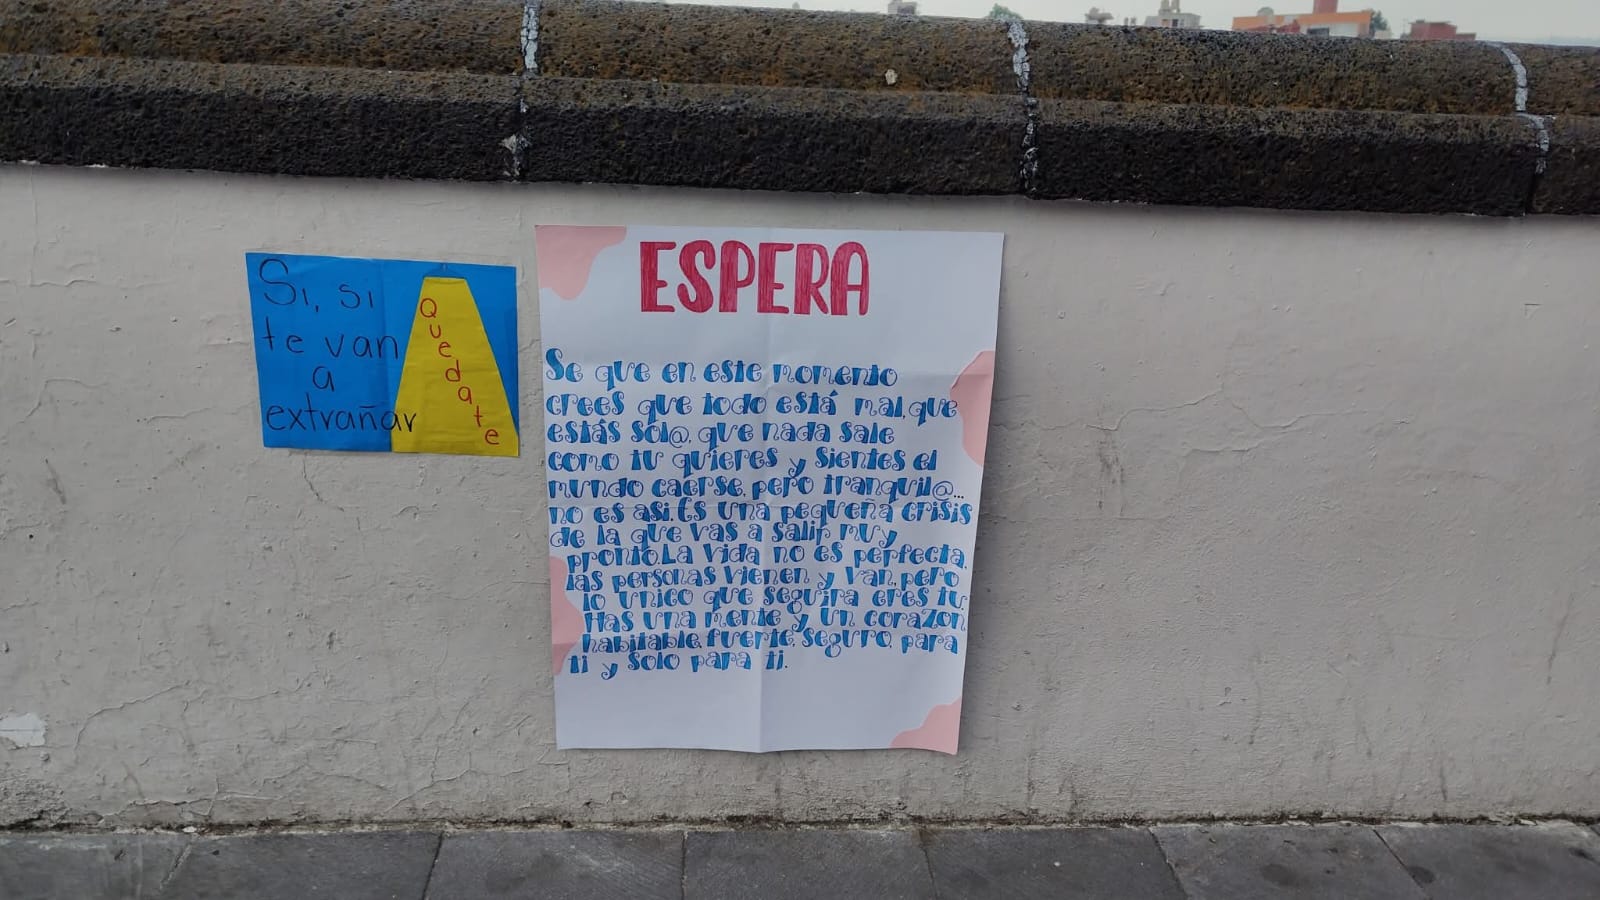 Si, si
te van
a
extrañar
Quedate
ESPERA
Se que en este momento
crees que todo está mal, que
estás sol@, que nada sale
como tu quieres y sientes el
mundo caerse, pero tranquil@...
no es asi. Es una pequeña crisis
de la que vas a salir muy
pronto. La vida no es perfecta,
las personas vienen y van, pero
lo unico que seguira eres tu.
Has una mente y un corazon
habitable, fuerte, seguro, para
ti y solo para ti.